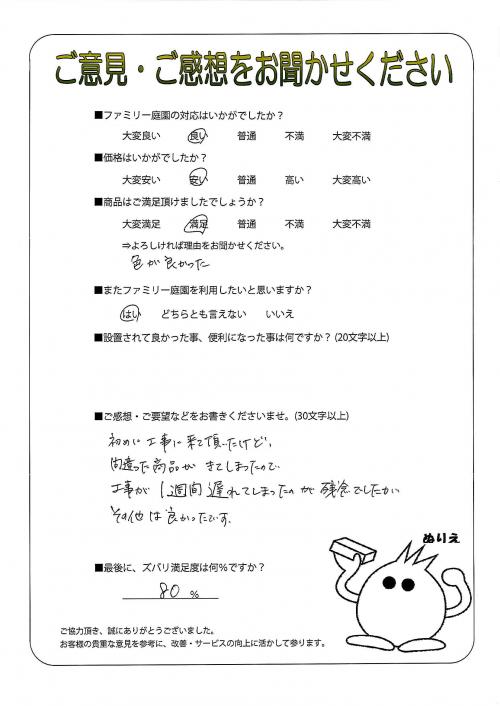 ご意見・ご感想をお聞かせください
■ファミリー庭園の対応はいかがでしたか？
大変良い 良い 普通 不満 大変不満
■価格はいかがでしたか？
大変安い 安い 普通 高い 大変高い
■商品はご満足頂けましたでしょうか？
大変満足 満足 普通 不満 大変不満
⇒よろしければ理由をお聞かせください。
色が良かった
■またファミリー庭園を利用したいと思いますか？
はい どちらとも言えない いいえ
■設置されて良かった事、便利になった事は何ですか？(20文字以上)
■ご感想・ご要望などをお書きくださいませ。(30文字以上)
初めに工事に来て頂いたけど、
間違った商品がきてしまったので
工事が1週間遅れてしまったのが残念でしたが
その他は良かったです。
ぬりえ
■最後に、ズバリ満足度は何%ですか？
80 %
ご協力頂き、誠にありがとうございました。
お客様の貴重な意見を参考に、改善・サービスの向上に活かして参ります。